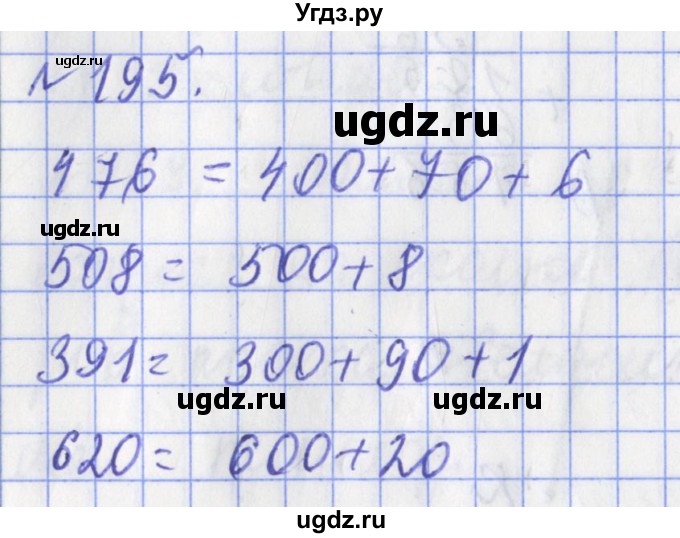 Угдз.ру
ugdz.ru
№ 195.
ugdz.ru
476 = 400 + 70 + 6
ugdz.ru
508 = 500 + 8
391 = 300 + 90 + 1
ugdz.ru ugdz.ru
620 = 600 + 20
ugdz.ru